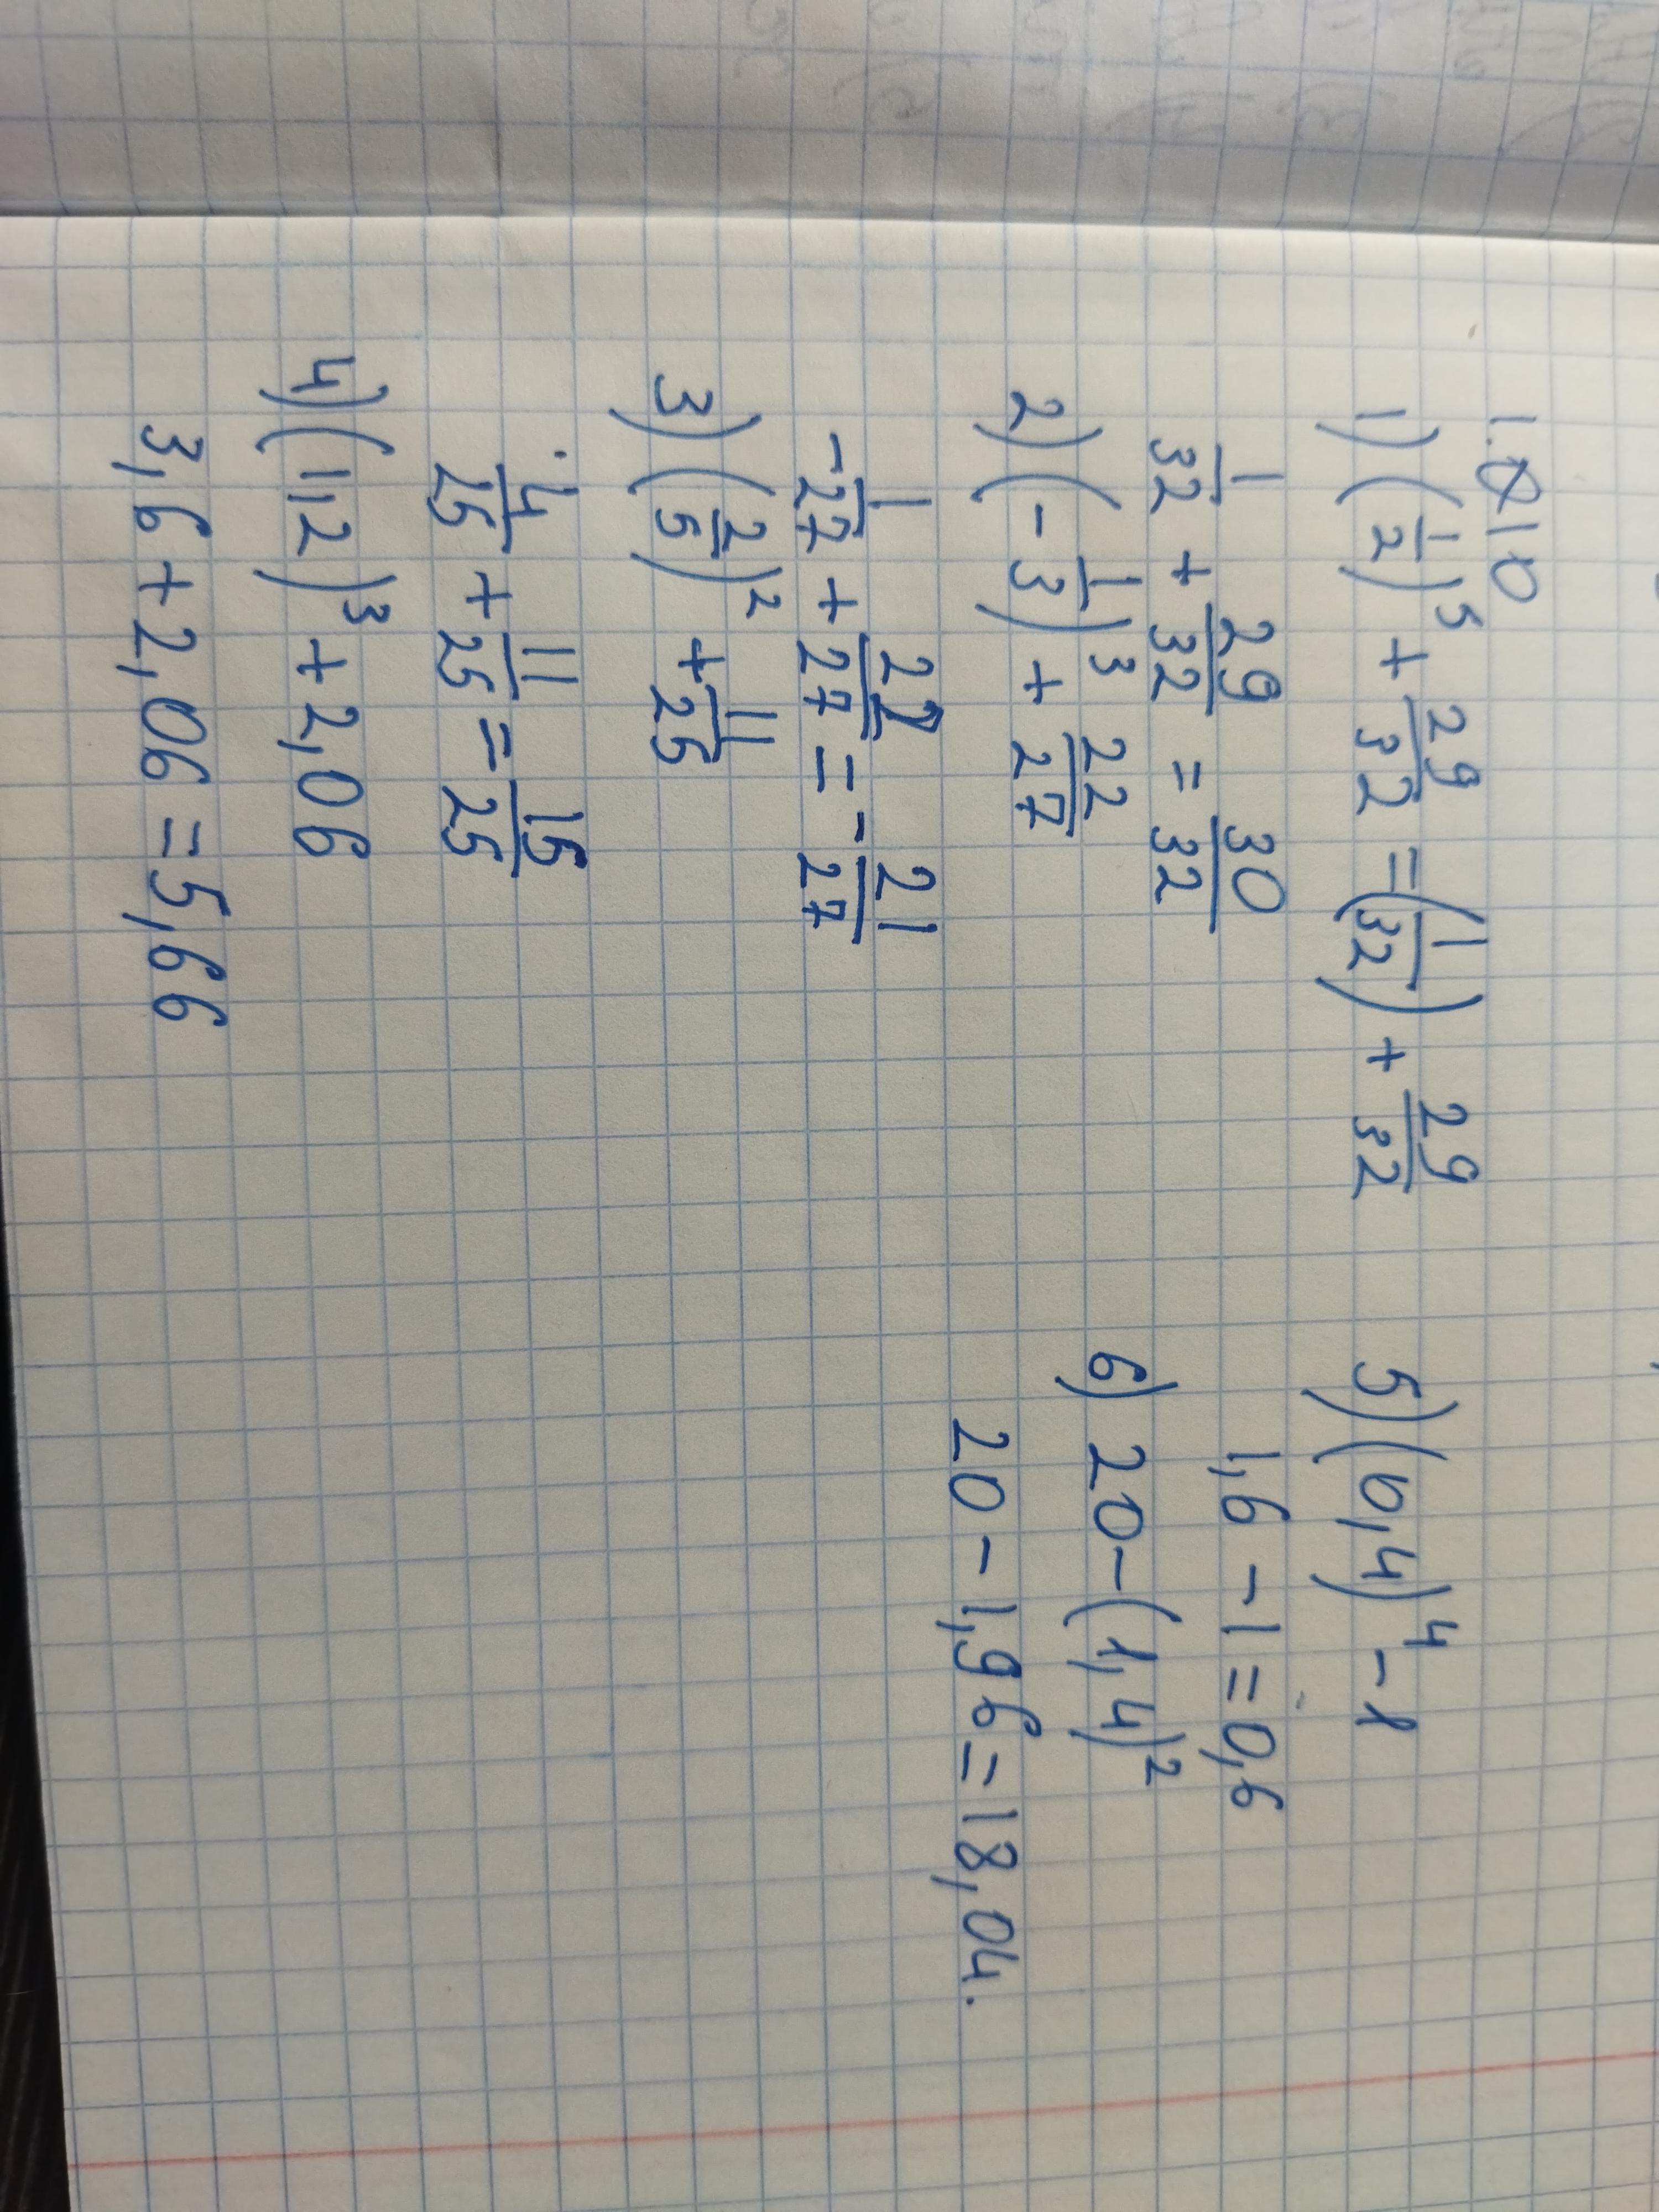 1.010
1) (1/2)^5 + 29/32 = (1/32) + 29/32
1/32 + 29/32 = 30/32
2) (-1/3)^3 + 22/27
-1/27 + 22/27 = -21/27
3) (2/5)^2 + 11/25
4/25 + 11/25 = 15/25
4) (1,2)^3 + 2,06
3,6 + 2,06 = 5,66
5) (0,4)^4 - 1
1,6 - 1 = 0,6
6) 20 - (1,4)^2
20 - 1,96 = 18,04.